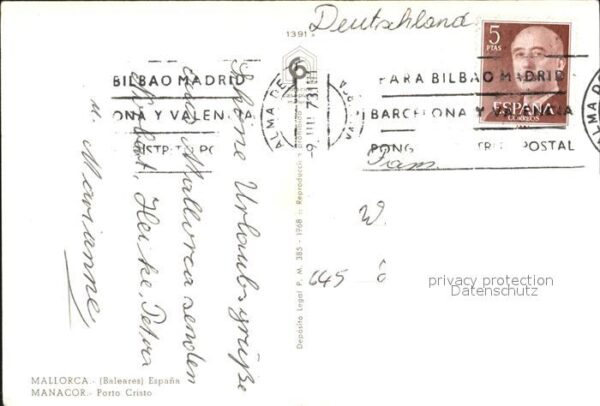 Schöne Urlaubsgrüße
aus Mallorca senden
Norbert, Heike, Petra
u. Marianne
MALLORCA.- (Baleares) España
MANACOR.- Porto Cristo
1391
Depósito Legal P. M. 385 - 1968 :: Reproducción prohibida
Deutschland
5
PTAS
ESPAÑA
CORREOS
BILBAO MADRID
ONA Y VALENCIA
DISTRITO PO
PARA BILBAO MADRID
BARCELONA Y VALENCIA
PONG DISTRITO POSTAL
ALMA DE
ALMA DE
Fam.
W.
645
privacy protection
Datenschutz